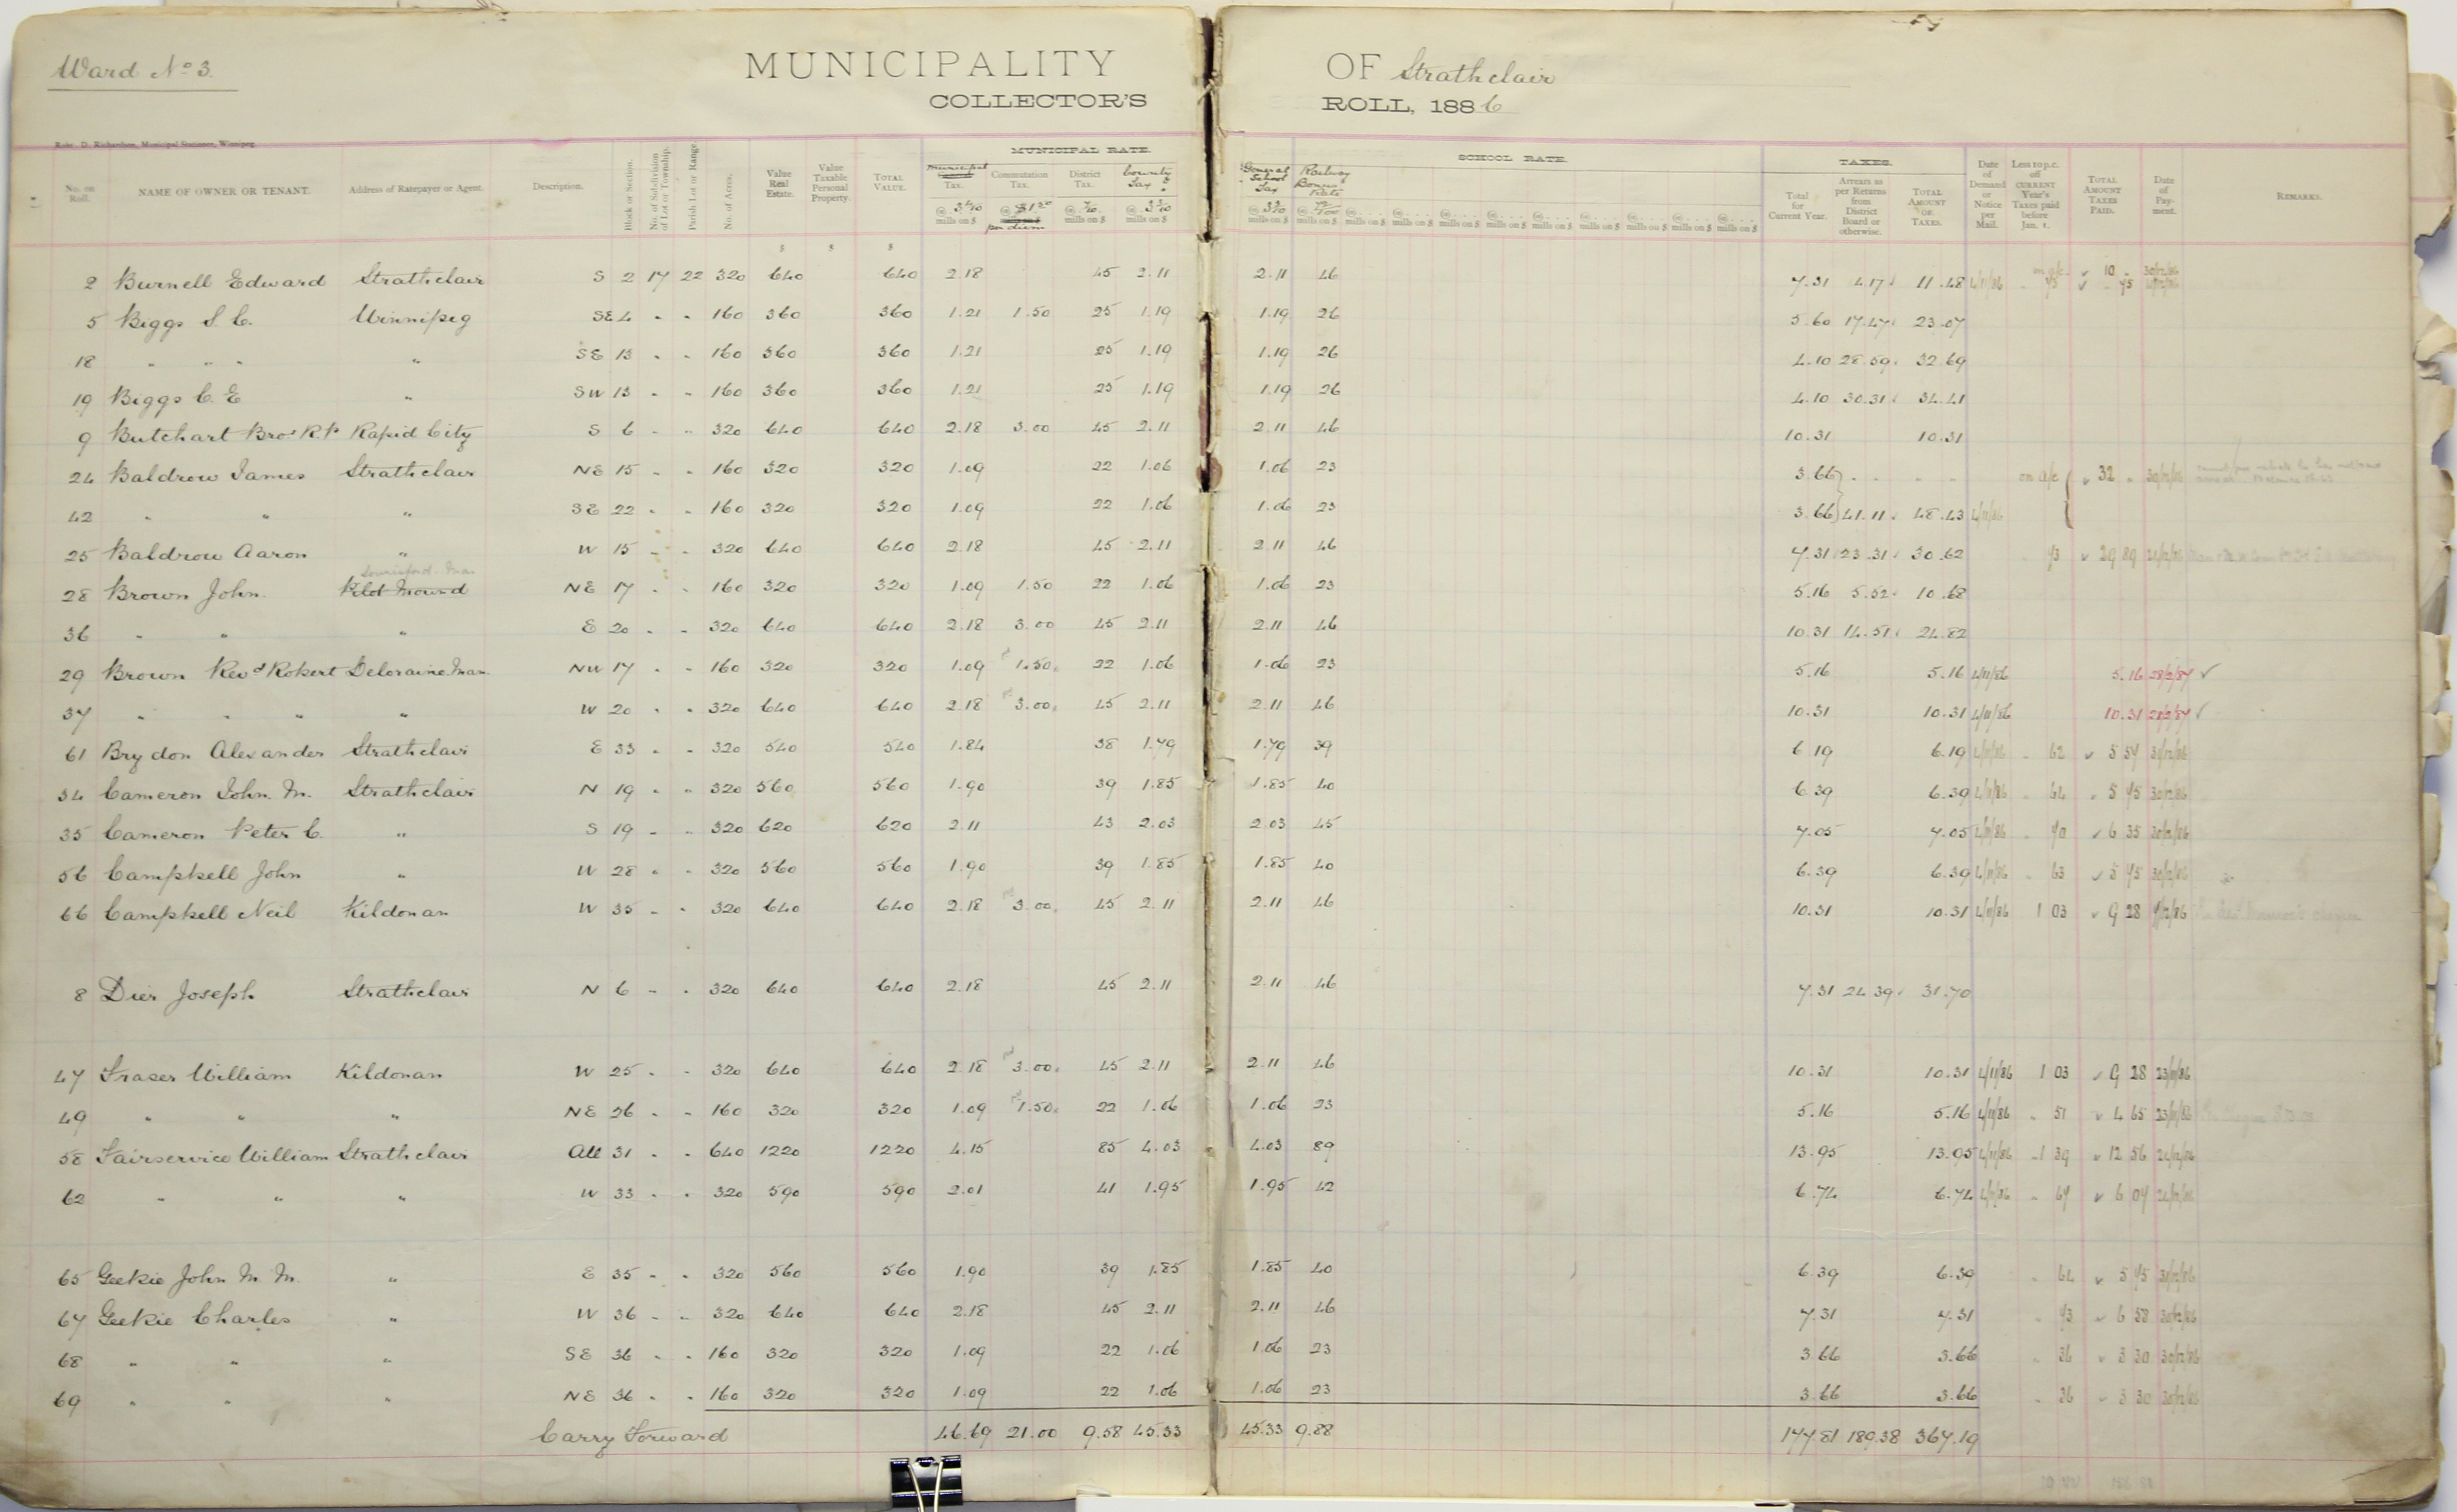 Ward No 3.
MUNICIPALITY OF Strathclair
COLLECTOR'S ROLL, 1886
Robt. D. Richardson, Municipal Stationer, Winnipeg.
MUNICIPAL RATE. SCHOOL RATE. TAXES.
No. on Roll. NAME OF OWNER OR TENANT. Address of Ratepayer or Agent. Description. Block or Section. No. of Subdivision of Lot or Township. Parish Lot or Range. No. of Acres. Value Real Estate. Value Taxable Personal Property. TOTAL VALUE. Municipal Tax. Commutation Tax. District Tax. County Tax General School Tax Railway Bonus Rate Total for Current Year. Arrears as per Returns from District Board or otherwise. TOTAL AMOUNT OF TAXES. Date of Demand or Notice per Mail. Less 10 p.c. off CURRENT Year's Taxes paid before Jan. 1. TOTAL AMOUNT TAXES PAID. Date of Payment. REMARKS.
2 Burnell Edward Strathclair S 2 17 22 320 640 640 2.18 45 2.11 2.11 46 7.31 4.17 11.48 4/11/86
5 Biggs S. C. Winnipeg SE 4 " " 160 360 360 1.21 1.50 25 1.19 1.19 26 5.60 17.47 23.07
18 " " " " SE 13 " " 160 360 360 1.21 25 1.19 1.19 26 4.10 28.59 32.69
19 Biggs C. E " SW 13 " " 160 360 360 1.21 25 1.19 1.19 26 4.10 30.31 34.41
9 Butchart Bros R.P. Rapid City S 6 " " 320 640 640 2.18 3.00 45 2.11 2.11 46 10.31 10.31
24 Baldrow James Strathclair NE 15 " " 160 320 320 1.09 22 1.06 1.06 23 3.66 on a/c 32 " 30/12/86
42 " " " SE 22 " " 160 320 320 1.09 22 1.06 1.06 23 3.66 41.11 48.43 4/11/86
25 Baldrow Aaron " W 15 " " 320 640 640 2.18 45 2.11 2.11 46 7.31 23.31 30.62 73 29 89
28 Brown John. Pilot Mound NE 17 " " 160 320 320 1.09 1.50 22 1.06 1.06 23 5.16 5.52 10.68
36 " " " E 20 " " 320 640 640 2.18 3.00 45 2.11 2.11 46 10.31 14.51 24.82
29 Brown Revd Robert Deloraine Man. NW 17 " " 160 320 320 1.09 1.50 22 1.06 1.06 23 5.16 5.16 4/11/86 5.16 28/2/87 ✓
37 " " " " W 20 " " 320 640 640 2.18 3.00 45 2.11 2.11 46 10.31 10.31 4/11/86 10.31 28/2/87 ✓
61 Brydon Alexander Strathclair E 33 " " 320 540 540 1.84 38 1.79 1.79 39 6.19 6.19 4/11/86 62 5 57 31/12/86
34 Cameron John. M. Strathclair N 19 " " 320 560 560 1.90 39 1.85 1.85 40 6.39 6.39 4/11/86 64 5 75 30/12/86
35 Cameron Peter C. " S 19 " " 320 620 620 2.11 43 2.03 2.03 45 7.05 7.05 4/11/86 70 6 35 30/12/86
56 Campbell John " W 28 " " 320 560 560 1.90 39 1.85 1.85 40 6.39 6.39 4/11/86 63 5 75 30/12/86
66 Campbell Neil Kildonan W 35 " " 320 640 640 2.18 3.00 45 2.11 2.11 46 10.31 10.31 4/11/86 1 03 9 28
8 Dier Joseph Strathclair N 6 " " 320 640 640 2.18 45 2.11 2.11 46 7.31 24.39 31.70
47 Fraser William Kildonan W 25 " " 320 640 640 2.18 3.00 45 2.11 2.11 46 10.31 10.31 4/11/86 1 03 9 28 23/11/86
49 " " " NE 26 " " 160 320 320 1.09 1.50 22 1.06 1.06 23 5.16 5.16 4/11/86 51 4 65 23/11/86
58 Fairservice William Strathclair All 31 " " 640 1220 1220 4.15 85 4.03 4.03 89 13.95 13.95 4/11/86 1 39 12 56 24/12/86
62 " " " W 33 " " 320 590 590 2.01 41 1.95 1.95 42 6.74 6.74 4/11/86 67 6 07 24/12/86
65 Geekie John M. M. " E 35 " " 320 560 560 1.90 39 1.85 1.85 40 6.39 6.39 64 5 75 31/12/86
67 Geekie Charles " W 36 " " 320 640 640 2.18 45 2.11 2.11 46 7.31 7.31 73 6 58 30/12/86
68 " " " SE 36 " " 160 320 320 1.09 22 1.06 1.06 23 3.66 3.66 36 3 30 30/12/86
69 " " " NE 36 " " 160 320 320 1.09 22 1.06 1.06 23 3.66 3.66 36 3 30 30/12/86
Carry Forward 46.69 21.00 9.58 45.33 45.33 9.88 177.81 189.38 367.19